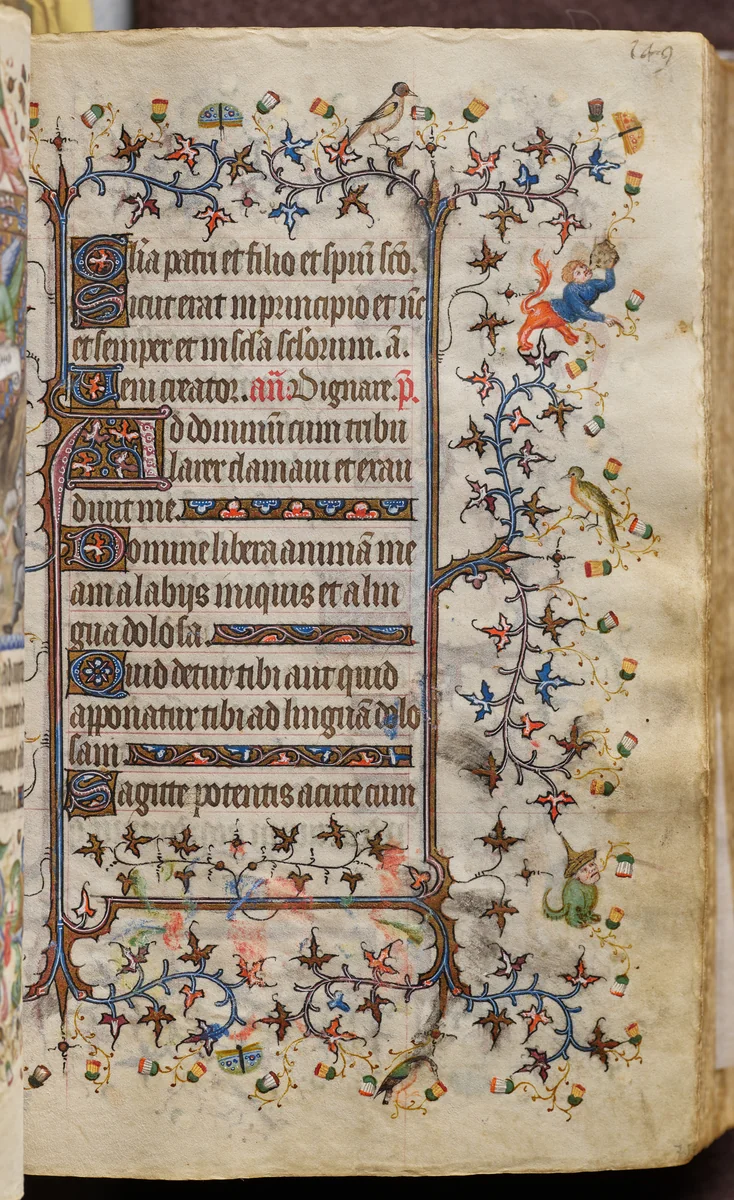 Gl'ia patri et filio et spiri sco.
Sicut erat in principio et nc
et semper et in sc'la sc'lorum. a.
Ueni creator. an. Dignare. p.
Ad dominu cum tribu
larer clamaui et exau
diuit me.
Domine libera anima me
am a labijs iniquis et a lin
gua dolosa.
Quid detur tibi aut quid
apponatur tibi ad lingua dolo
sam
Sagitte potentis acute cum